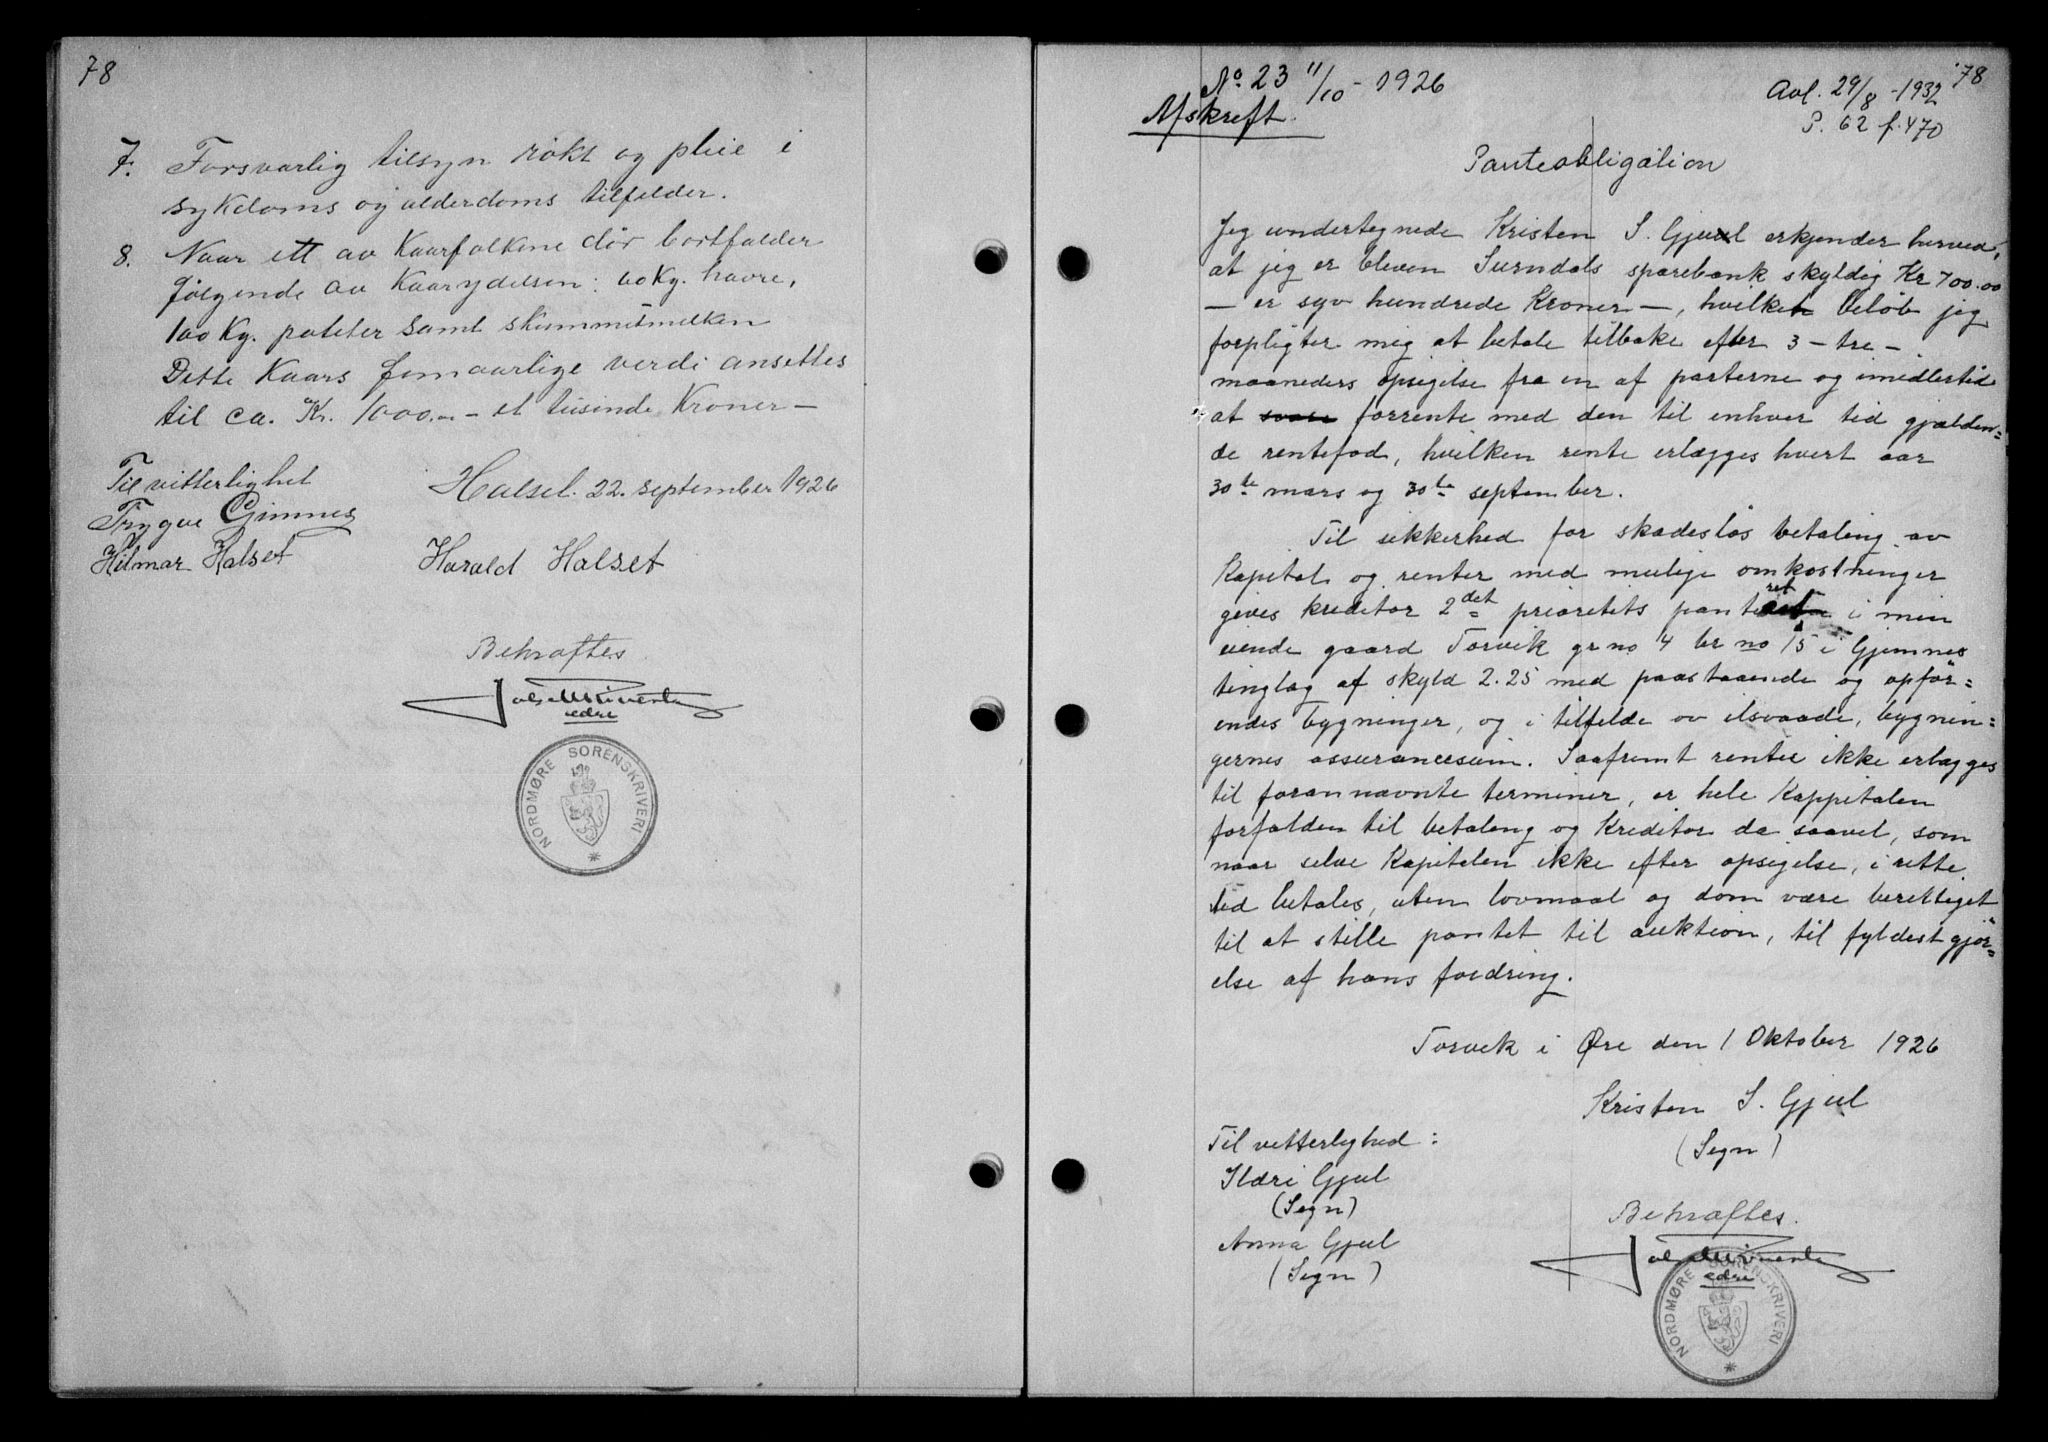 78
7. Forsvarlig tilsyn røkt og pleie i
sykdoms og alderdoms tilfelder.
8. Naar ett av Kaarfolkene dör bortfalder
følgende av Kaarydelsen: 60 Kg. havre,
100 Kg. poteter samt skummetmelken
Dette Kaars femaarlige verdi ansettes
til ca. Kr. 1000.00 – et tusinde Kroner –
Til vitterlighet
Halset. 22. september 1926
Trygve Gimnes
Hilmar Halset
Harald Halset
Bekraftes
edre
NORDMØRE SORENSKRIVERI
No. 23 11/10 - 1926
78
Avl. 29/8 - 1932
P. 62 f. 470
Afskreft.
Panteobligation
Jeg undertegnede Kristen S. Gjul erkjender herved,
at jeg er bleven Surndals sparebank skyldig Kr 700.00
– er syv hundrede Kroner –, hvilket beløb jeg
forpligter mig at betale tilbake efter 3 – tre –
maaneders opsigelse fra en af parterne og imidlertid
at svare forrente med den til enhver tid gjælden=
de rentefod, hvilken rente erlægges hvert aar
30te mars og 30te september.
Til sikkerhed for skadesløs betaling av
Kapital og renter med mulige omkostninger
gives kreditor 2det prioretets panteret i min
eiende gaard Torvik gr no 4 br no 15 i Gjemnes
tinglag af skyld 2.25 med paastaaende og opför=
endes bygninger, og i tilfelde av ilsvaade, bygnin=
gernes assurancesum. Saafremt renter ikke erlægges
til forannævnte terminer, er hele Kappitalen
forfalden til betaleng og Kreditor da saavel, som
naar selve Kapitalen ikke efter opsigelse, i rette
tid betales, uten lovmaal og dom være berettiget
til at stille pantet til auktion, til fyldestgjör=
else af hans fordring.
Torvik i Øre den 1 Oktober 1926
Kristen S. Gjul
(Segn)
Til vetterlyhed:
Ildri Gjul
(Segn)
Anna Gjul
(Segn)
Bekraftes.
edre
NORDMØRE SORENSKRIVERI